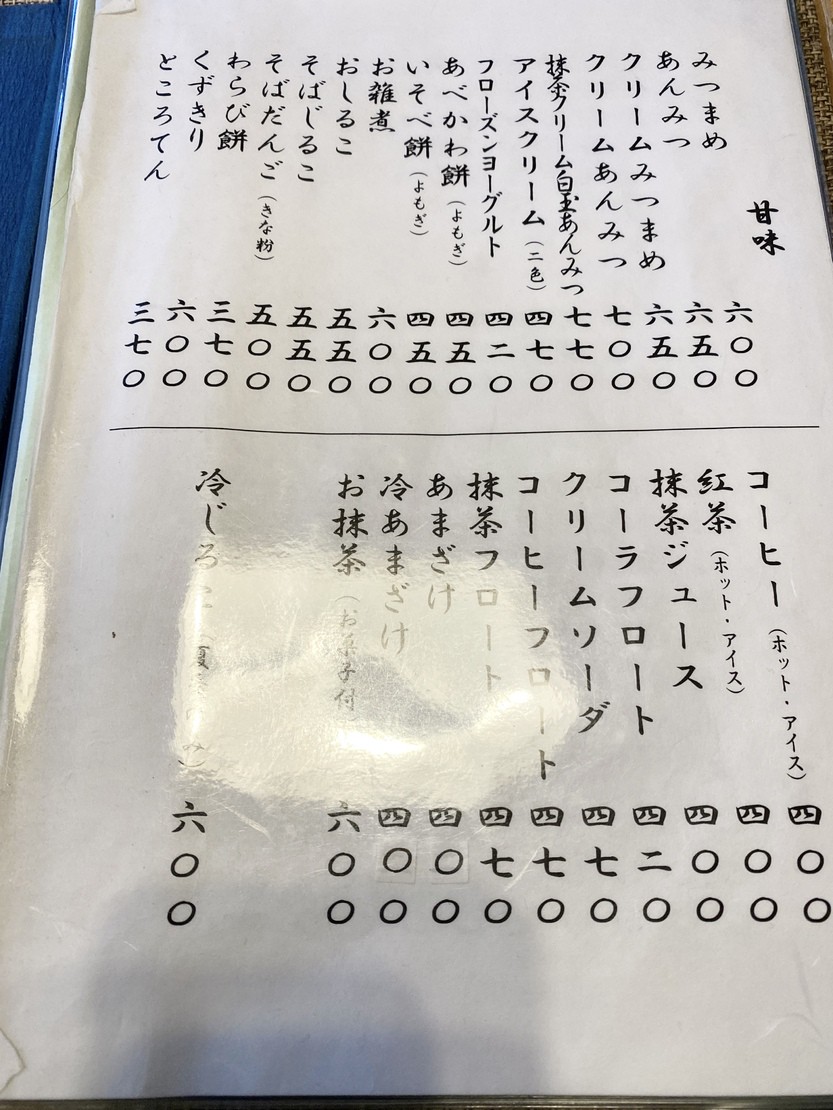 甘味
みつまめ 六〇〇
あんみつ 六五〇
クリームみつまめ 六五〇
クリームあんみつ 七〇〇
抹茶クリーム白玉あんみつ 七七〇
アイスクリーム（二色） 四七〇
フローズンヨーグルト 四二〇
あべかわ餅（よもぎ） 四五〇
いそべ餅（よもぎ） 四五〇
お雑煮 六〇〇
おしるこ 五五〇
そばじるこ 五五〇
そばだんご（きな粉） 五〇〇
わらび餅 三七〇
くずきり 六〇〇
ところてん 三七〇
コーヒー（ホット・アイス） 四〇〇
紅茶（ホット・アイス） 四〇〇
抹茶ジュース 四〇〇
コーラフロート 四二〇
クリームソーダ 四七〇
コーヒーフロート 四七〇
抹茶フロート 四七〇
あまざけ 四〇〇
冷あまざけ 四〇〇
お抹茶（お菓子付） 六〇〇
冷じるこ（夏季のみ） 六〇〇